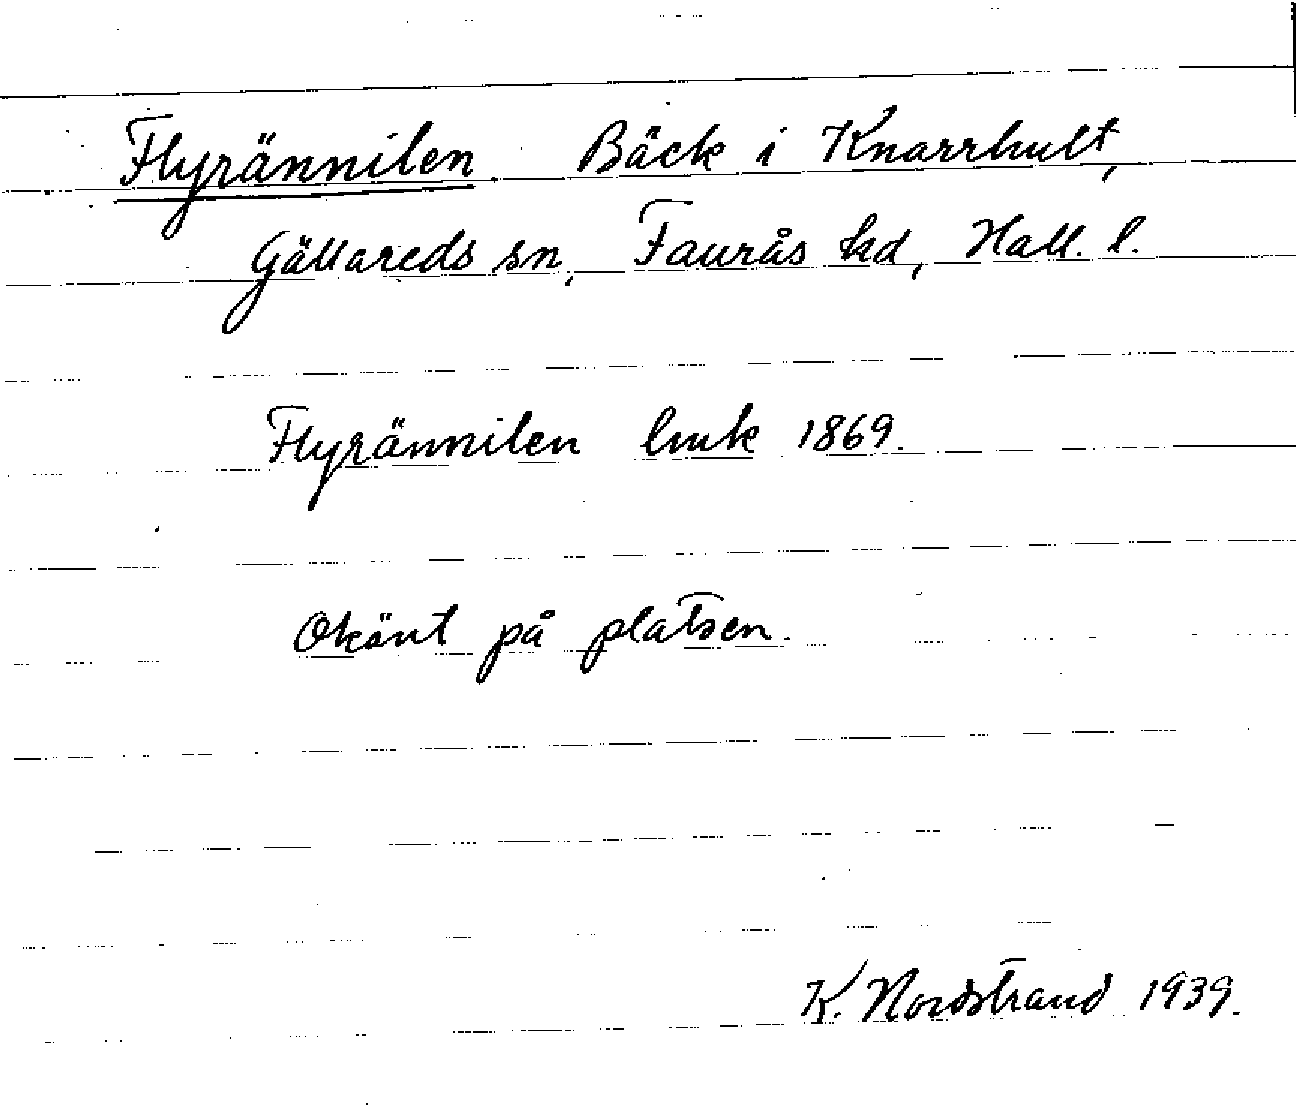 Flyrännilen Bäck i Knarrhult,
Gällareds sn, Faurås hd, Hall. l.
Flyrännilen lmk 1869.
Okänt på platsen.
K. Nordstrand 1939.